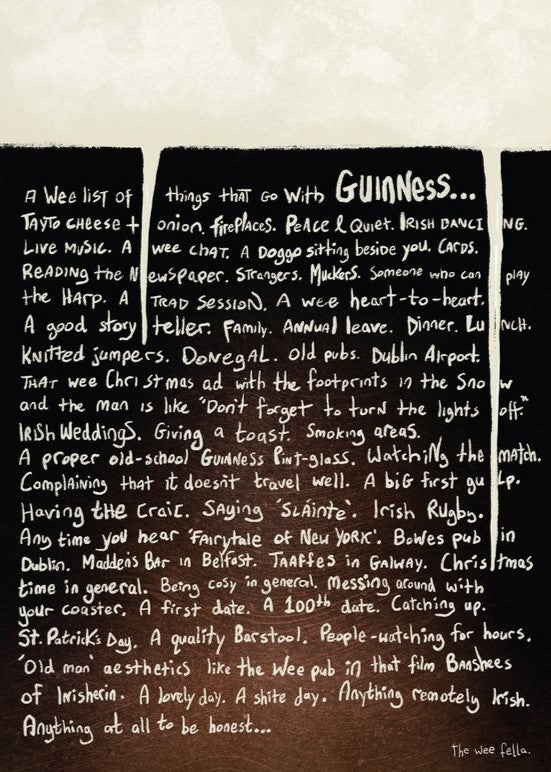 A Wee list of things that go with GUINNESS...
Tayto cheese + onion. Fireplaces. Peace & Quiet. Irish dancing.
Live music. A wee chat. A Doggo sitting beside you. Cards.
Reading the Newspaper. Strangers. Muckers. Someone who can play
the Harp. A Trad Session. A wee heart-to-heart.
A good story teller. Family. Annual leave. Dinner. Lunch.
Knitted jumpers. Donegal. Old pubs. Dublin Airport.
That wee Christmas ad with the footprints in the Snow
and the man is like "Don't forget to turn the lights off."
Irish Weddings. Giving a toast. Smoking areas.
A proper old-school Guinness Pint-glass. Watching the match.
Complaining that it doesn't travel well. A big first gulp.
Having the Craic. Saying 'Sláinte'. Irish Rugby.
Any time you hear 'Fairytale of New York'. Bowes pub in
Dublin. Madden's Bar in Belfast. Taaffes in Galway. Christmas
time in general. Being cosy in general. Messing around with
your coaster. A first date. A 100th date. Catching up.
St. Patrick's Day. A quality Barstool. People-watching for hours.
'Old man' aesthetics like the wee pub in that film Banshees
of Inisherin. A lovely day. A shite day. Anything remotely Irish.
Anything at all to be honest...
the wee fella.